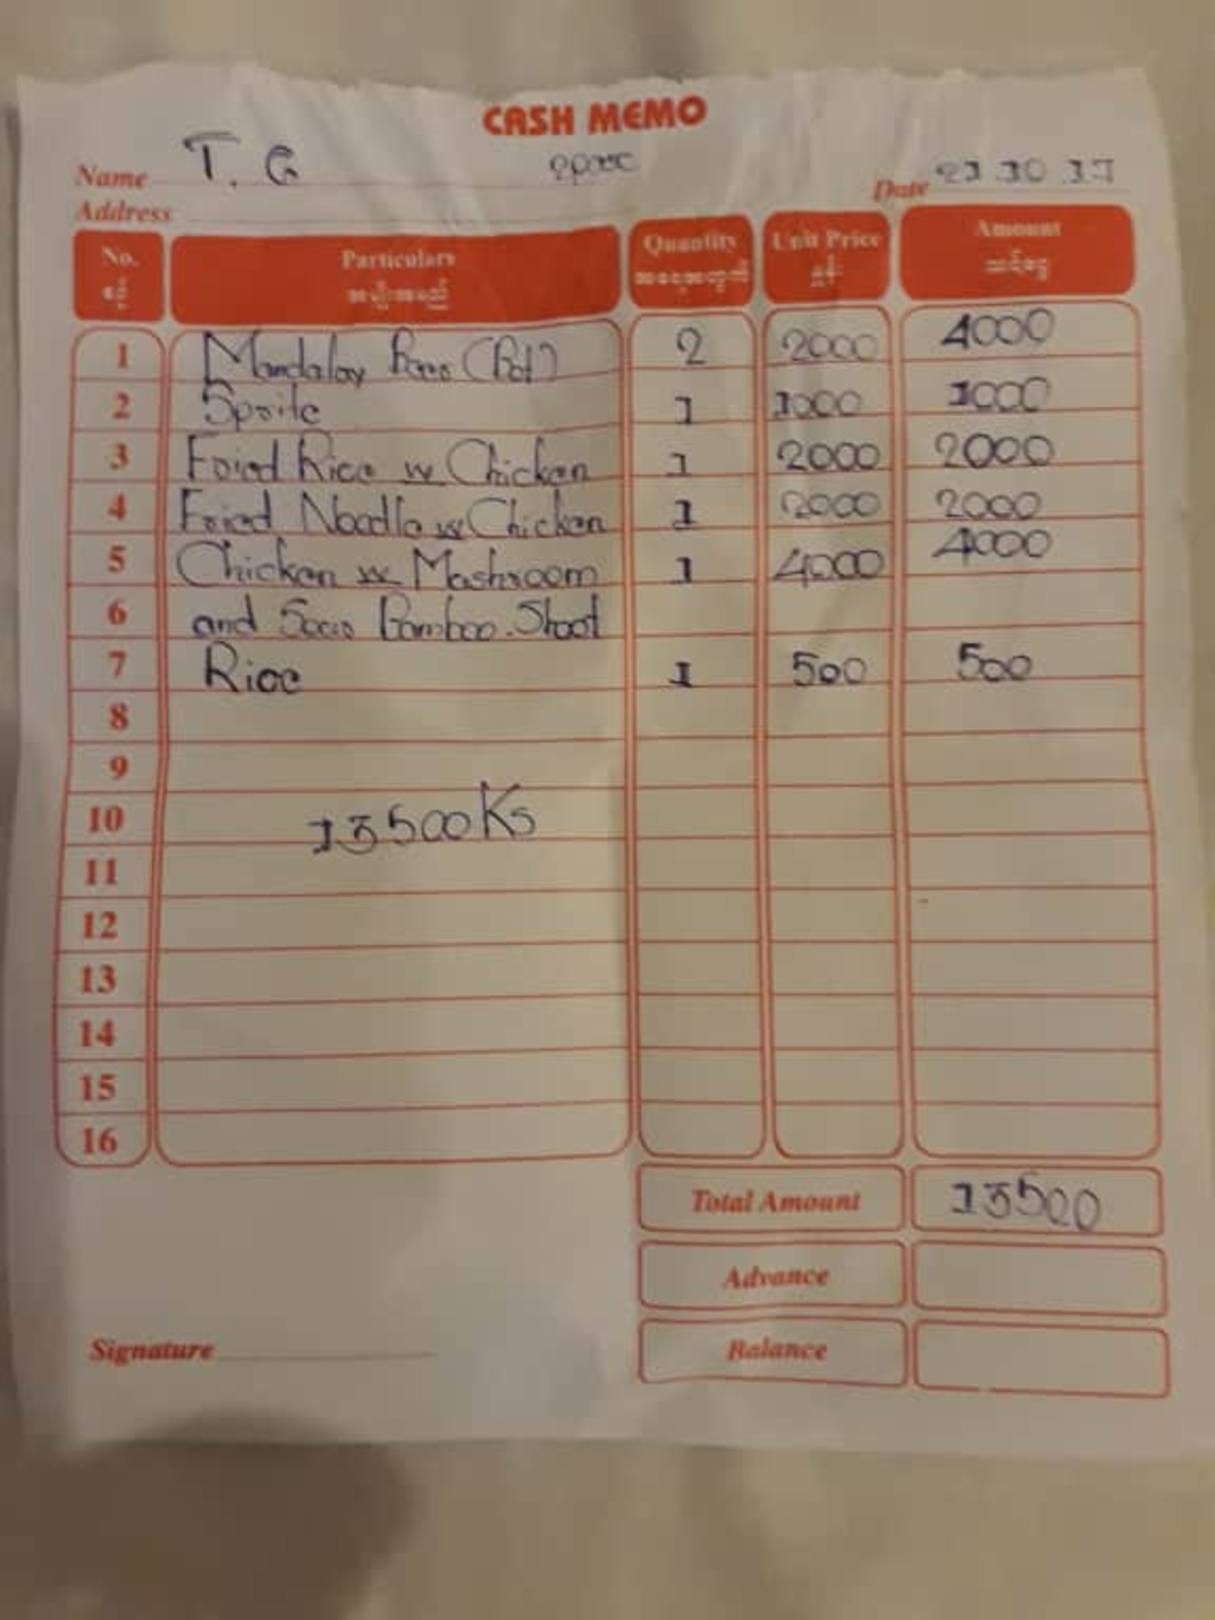 CASH MEMO
Name T. G
Date 21.10.17
Address
No. Particulars Quantity Unit Price Amount
စဉ် အမျိုးအမည် အရေအတွက် နှုန်း သင့်ငွေ
1 Mandalay Beer (Bot) 2 2000 4000
2 Sprite 1 1000 1000
3 Fried Rice w Chicken 1 2000 2000
4 Fried Noodle w Chicken 1 2000 2000
5 Chicken w Mashroom 1 4000 4000
6 and Sour Bamboo Shoot
7 Rice 1 500 500
8
9
10 13500 Ks
11
12
13
14
15
16
Total Amount 13500
Advance
Balance
Signature